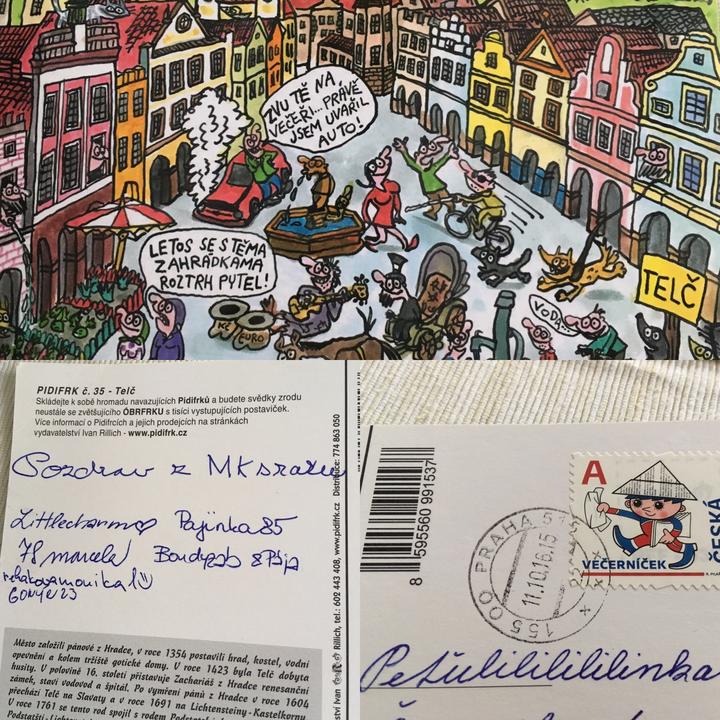 ZVU TĚ NA
VEČEŘI...PRÁVĚ
JSEM UVAŘIL
AUTO!
LETOS SE S TĚMA
ZAHRÁDKAMA
ROZTRH PYTEL!
KČ
EURO
VODA...
TELČ
PIDIFRK č. 35 - Telč
Skládejte k sobě hromadu navazujících Pidifrků a budete svědky zrodu
neustále se zvětšujícího ÓBRFRKU s tisíci vystupujících postaviček.
Více informací o Pidifrcích a jejich prodejcích na stránkách
vydavatelství Ivan Rillich - www.pidifrk.cz
Pozdrav z MKsrazu
Littlecharm Pajinka85
78marcela Bondypsb &Pája
rehakovamonika1
GONYE23
Město založili pánové z Hradce, v roce 1354 postavili hrad, kostel, vodní
opevnění a kolem tržiště gotické domy. V roce 1423 byla Telč dobyta
husity. V polovině 16. století přistavuje Zachariáš z Hradce renesanční
zámek, staví vodovod a špitál. Po vymření pánů z Hradce v roce 1604
přechází Telč na Slavaty a v roce 1691 na Lichtensteiny - Kastelkorny
V roce 1761 se tento rod spojil s rodem
Rillich, tel.: 602 443 408, www.pidifrk.cz Distribuce: 774 863 050
8 595560 991537
PRAHA 515
11.10.16.15
155 00
A
VEČERNÍČEK
ČESKÁ
Petulililililinka